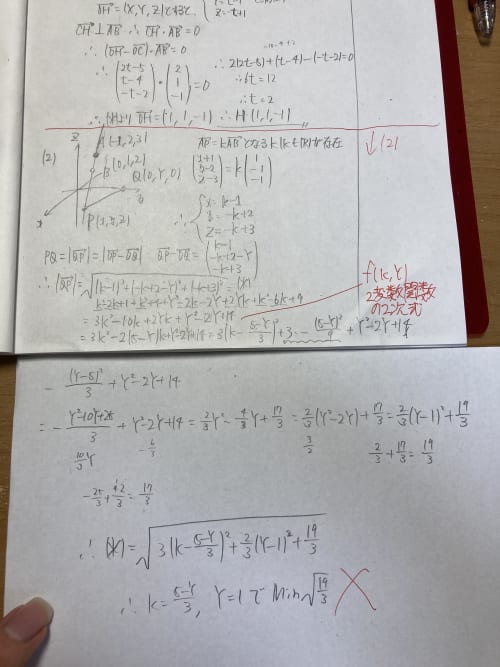 OH=(X,Y,Z)とおくと
z=-t+1
CH⊥AB ∴CH・AB=0
∴(OH-OC)・AB=0
∴(2t-5 t-4 -t-2)・(2 1 -1)=0
∴2(2t-5)+(t-4)-(-t-2)=0
∴6t=12
∴t=2
OH=(1,1,-1) ∴H(1,1,-1)
↓(2)
(2)
z
A(-1,2,3)
B(0,1,2)
Q(0,Y,0)
x
AP=kABとなる
(x+1 y-2 z-3)=k(1 -1 -1)
∴{x=k-1
y=-k+2
z=-k+3
PQ=|QP|=|OP-OQ| OP-OQ=(k-1 -k+2-Y -k+3)
∴|QP|=√(k-1)²+(-k+2-Y)²+(-k+3)²=(※)
k²-2k+1+k²+4+Y²-2k-2Y+2Yk+k²-6k+9
=3k²-10k+2Yk+Y²-2Y+14
=3k²-2(5-Y)k+Y²-2Y+14=3(k-(5-Y)/3)²+3・-(5-Y)²/9+Y²-2Y+14
f(k,Y)
2変数関数
の2次式
-(Y-5)²/3+Y²-2Y+14
=-(Y²-10Y+25)/3+Y²-2Y+14=2/3Y²-4/3Y+17/3=2/3(Y²-2Y)+17/3=2/3(Y-1)²+19/3
10/3Y -6/3 3/2 2/3+17/3=19/3
-25/3+42/3=17/3
∴(※)=√3(k-(5-Y)/3)²+2/3(Y-1)²+19/3
∴k=(5-Y)/3, Y=1で Min√19/3